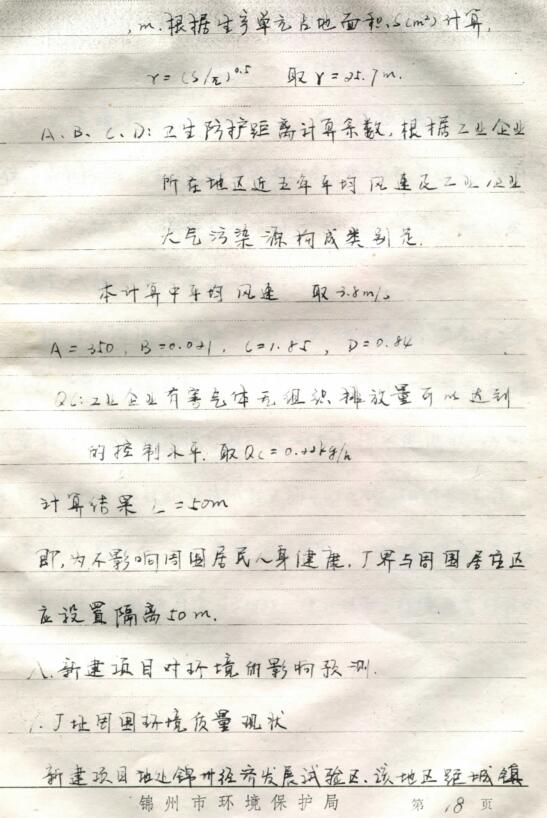 ,m.根据生产单元占地面积.S(m²)计算,
γ=(S/π)^0.5 取γ=25.7m.
A、B、C、D:卫生防护距离计算系数,根据工业企业
所在地区近五年平均风速及工业企业
大气污染源构成类别定.
本计算中平均风速 取3.8m/s
A=350, B=0.021, C=1.85, D=0.84
Qc:工业企业有害气体无组织排放量可以达到
的控制水平.取Qc=0.22kg/h
计算结果 L=50m
即,为不影响周围居民人身健康.厂界与周围居住区
应设置隔离50m.
八.新建项目对环境的影响预测.
厂址周围环境质量现状
新建项目地处锦州经济发展试验区.该地区距城镇
锦州市环境保护局 第18页